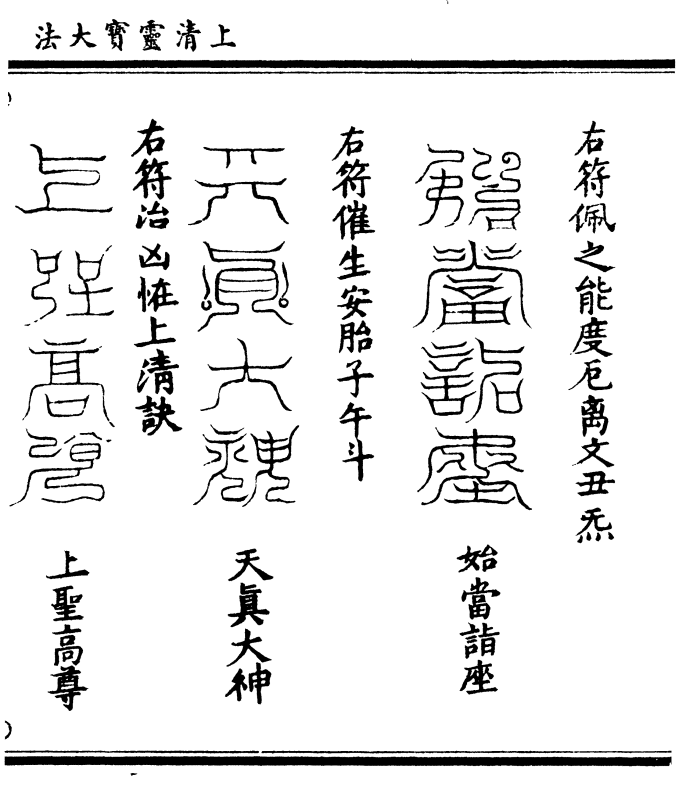 上清靈寶大法
右符佩之能度厄离文丑炁
始當詣座
右符催生安胎子午斗
天真大神
右符治凶怪上清訣
上聖高尊